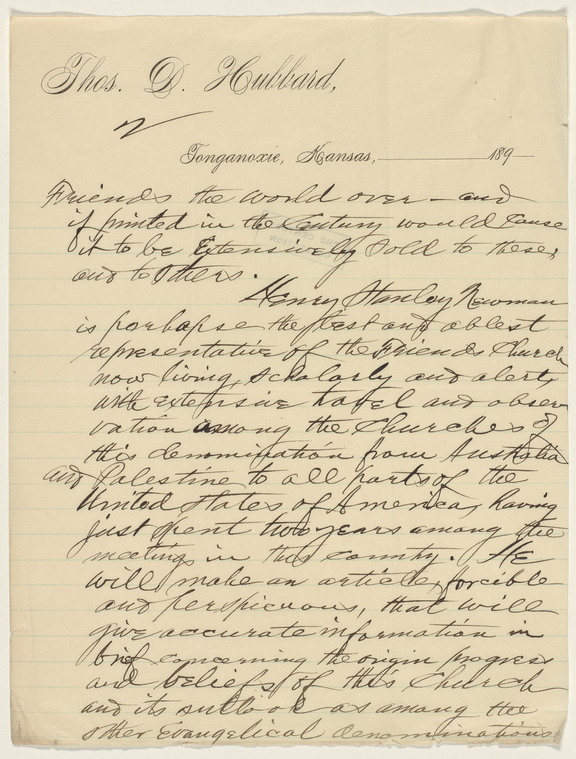 Thos. D. Hubbard,
2
Tonganoxie, Kansas, 189
Friends the world over — and
if printed in the Century would cause
it to be Extensively sold to these,
and to others.
Henry Stanley Newman
is porhapse the best and ablest
representative of the Friends Church
now living, scholarly and alert,
with extensive travel and obser
vation among the Churches of
this denomination from Australia
and Palestine to all parts of the
United States of America, having
just spent two years among the
meetings in this country. He
will make an article, forcible
and perspicuous, that will
give accurate information in
brief concerning the origin progress
and beliefs of this Church
and its outlook as among the
other Evangelical denominations.